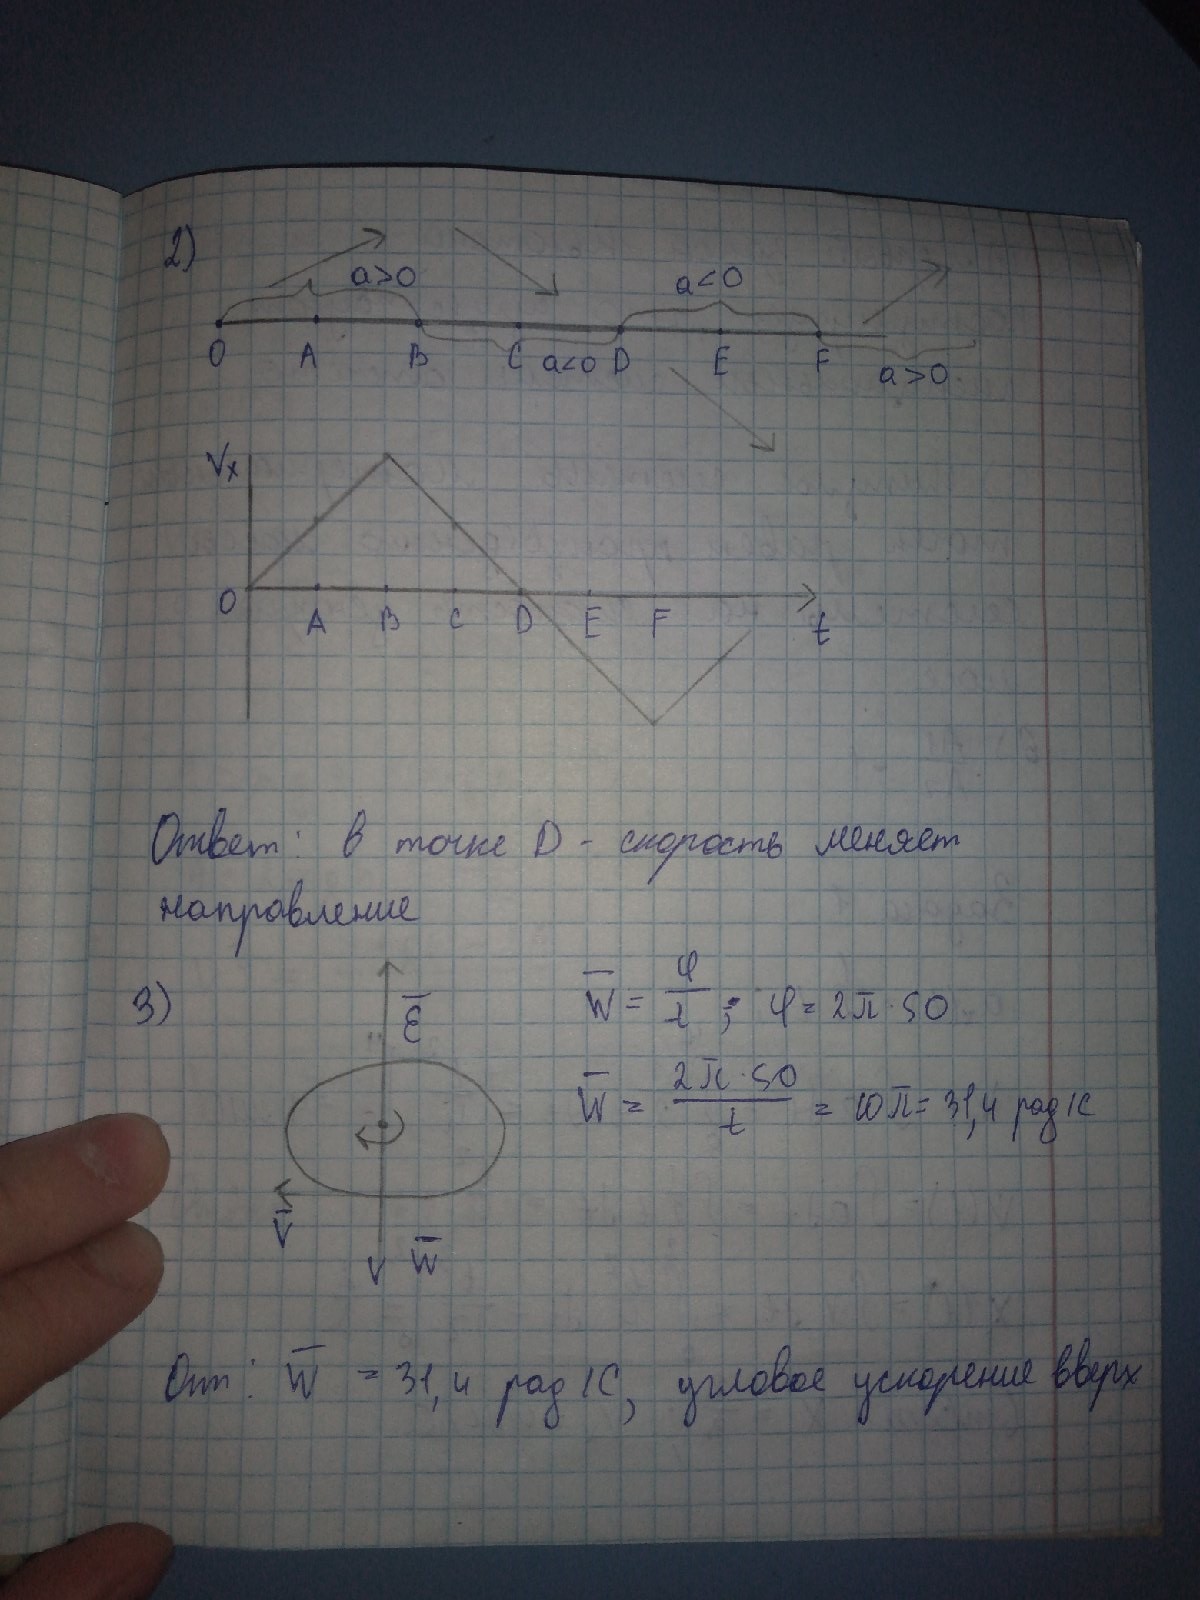 2)
a>0
a<0
O A B C a<0 D E F a>0
Vx
O A B C D E F t
Ответ: в точке D - скорость меняет
направление
3)
ε̅
W̅ = φ/t ; φ = 2π·50
W̅ = 2π·50/t = 10π = 31,4 рад/с
V̅
W̅
От: W̅ = 31,4 рад/С, угловое ускорение вверх